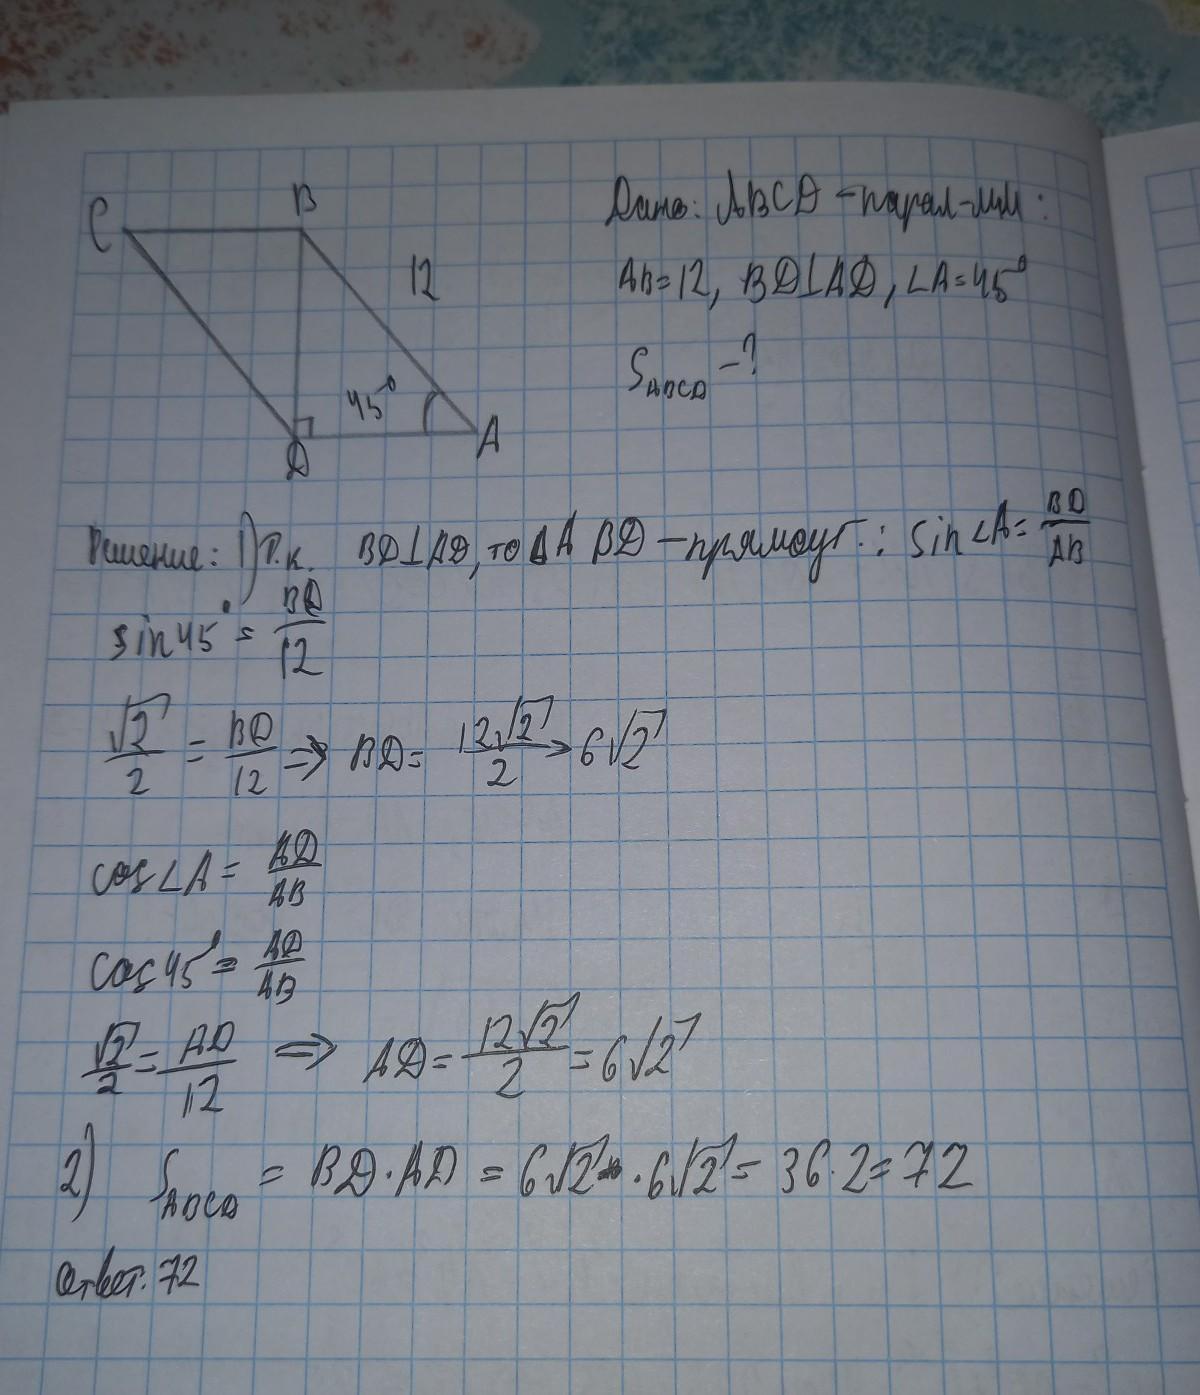 C B
12
45°
D A
Дано: ABCD – парал-мм:
AB=12, BD⊥AD, ∠A=45°
S_ABCD – ?
Решение: 1) Т.к. BD⊥AD, то ΔABD – прямоуг.: sin∠A = BD/AB
sin45° = BD/12
√2/2 = BD/12 ⇒ BD = 12√2/2 = 6√2
cos∠A = AD/AB
cos45° = AD/AB
√2/2 = AD/12 ⇒ AD = 12√2/2 = 6√2
2) S_ABCD = BD·AD = 6√2 · 6√2 = 36·2 = 72
Ответ: 72